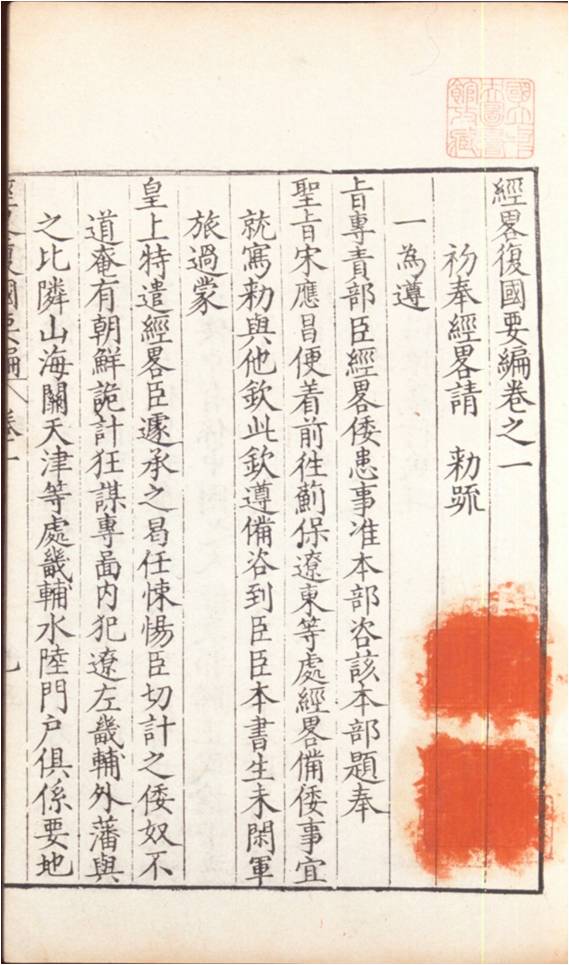 經畧復國要編卷之一
初奉經畧請　勑䟽
一為遵
旨專責部臣經畧倭患事准本部咨該本部題奉
聖旨宋應昌便着前徃薊保遼東等處經畧備倭事宜
就寫勑與他欽此欽遵備咨到臣臣本書生未閑軍
旅過蒙
皇上特遣經畧臣遽承之曷任悚惕臣切計之倭奴不
道奄有朝鮮詭計狂謀專啚内犯遼左畿輔外藩與
之比隣山海關天津等處畿輔水陸門户俱係要地